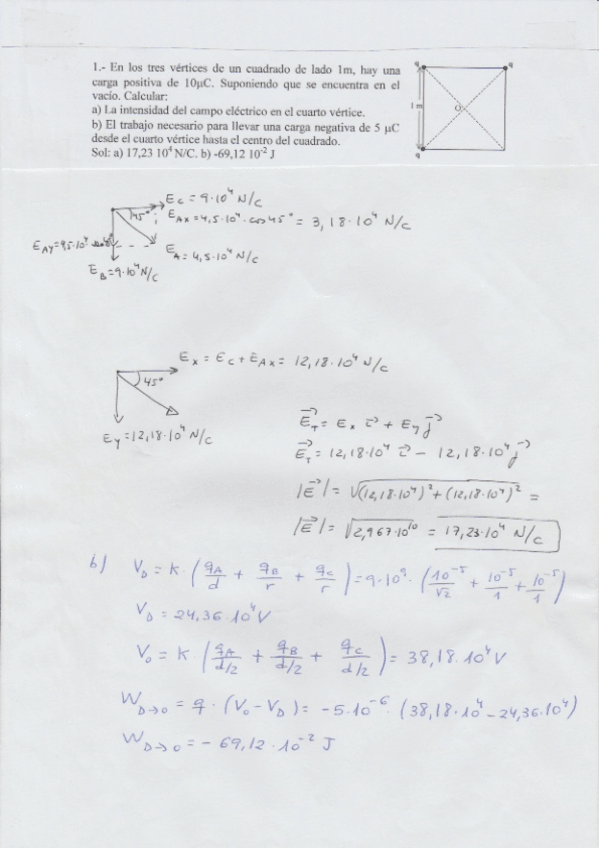 1.- En los tres vértices de un cuadrado de lado 1m, hay una
carga positiva de 10µC. Suponiendo que se encuentra en el
vacío. Calcular:
a) La intensidad del campo eléctrico en el cuarto vértice.
b) El trabajo necesario para llevar una carga negativa de 5 µC
desde el cuarto vértice hasta el centro del cuadrado.
Sol: a) 17,23 10⁴ N/C. b) -69,12 10⁻² J
q q
1 m
O
q
E_C = 9·10⁴ N/C
45°
E_AX = 4,5·10⁴ · cos 45° = 3,18·10⁴ N/C
E_AY = 4,5·10⁴
E_A = 4,5·10⁴ N/C
E_B = 9·10⁴ N/C
E_X = E_C + E_AX = 12,18·10⁴ N/C
45°
E_Y = 12,18·10⁴ N/C
E⃗_T = E_X i⃗ + E_Y j⃗
E⃗_T = 12,18·10⁴ i⃗ − 12,18·10⁴ j⃗
|E⃗| = √((12,18·10⁴)² + (12,18·10⁴)²) =
|E⃗| = √(2,967·10¹⁰) = 17,23·10⁴ N/C
b) V_D = K · (q_A/d + q_B/r + q_C/r) = 9·10⁹ · (10⁻⁵/√2 + 10⁻⁵/1 + 10⁻⁵/1)
V_D = 24,36·10⁴ V
V_O = K · (q_A/d/2 + q_B/d/2 + q_C/d/2) = 38,18·10⁴ V
W_D→O = q · (V_O − V_D) = −5·10⁻⁶ · (38,18·10⁴ − 24,36·10⁴)
W_D→O = − 69,12 · 10⁻² J